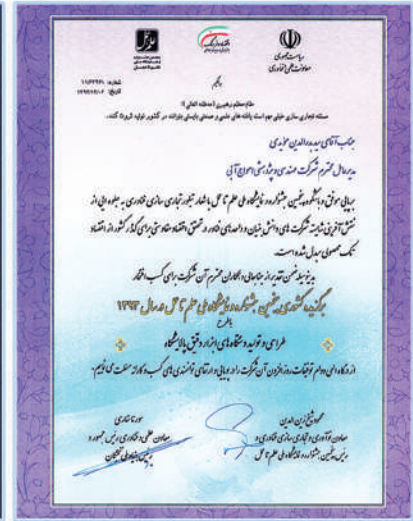 ریاست جمهوری
معاونت علمی و فناوری
شماره: ۱۱/۶۲۹۶۱
تاریخ: ۱۳۹۳/۱۲/۰۲
مقام معظم رهبری (مدظله العالی):
مسئله تجاری سازی خیلی مهم است یافته های علمی و صنعتی بایستی بتوانند در کشور تولید ثروت کنند.
جناب آقای سید بدرالدین مؤیدی
مدیرعامل محترم شرکت مهندسی و پژوهشی امواج آبی
برپایی موفق و باشکوه پنجمین جشنواره و نمایشگاه ملی علم تا عمل با شعار تبلور تجاری سازی فناوری به جلوه ایی از
نقش آفرینی شایسته شرکت های دانش بنیان و واحدهای فناور در تحقق اقتصاد مقاومتی برای گذار کشور از اقتصاد
تک محصولی مبدل شده است.
بدینوسیله ضمن تقدیر از جنابعالی و همکاران محترم آن شرکت برای کسب افتخار
برگزیده کشوری پنجمین جشنواره و نمایشگاه ملی علم تا عمل در سال ۱۳۹۳
با طرح
طراحی و تولید دستگاه های ابزار دقیق پالایشگاه
از درگاه الهی دوام توفیقات روزافزون آن شرکت را در پویایی و ارتقای توانمندی های کسب و کارانه مسئلت می نمایم.
محمود شیخ زین الدین
معاون نوآوری و تجاری سازی فناوری و
رئیس پنجمین جشنواره و نمایشگاه ملی علم تا عمل
سورنا ستاری
معاون علمی و فناوری رئیس جمهور و
رئیس بنیاد ملی نخبگان